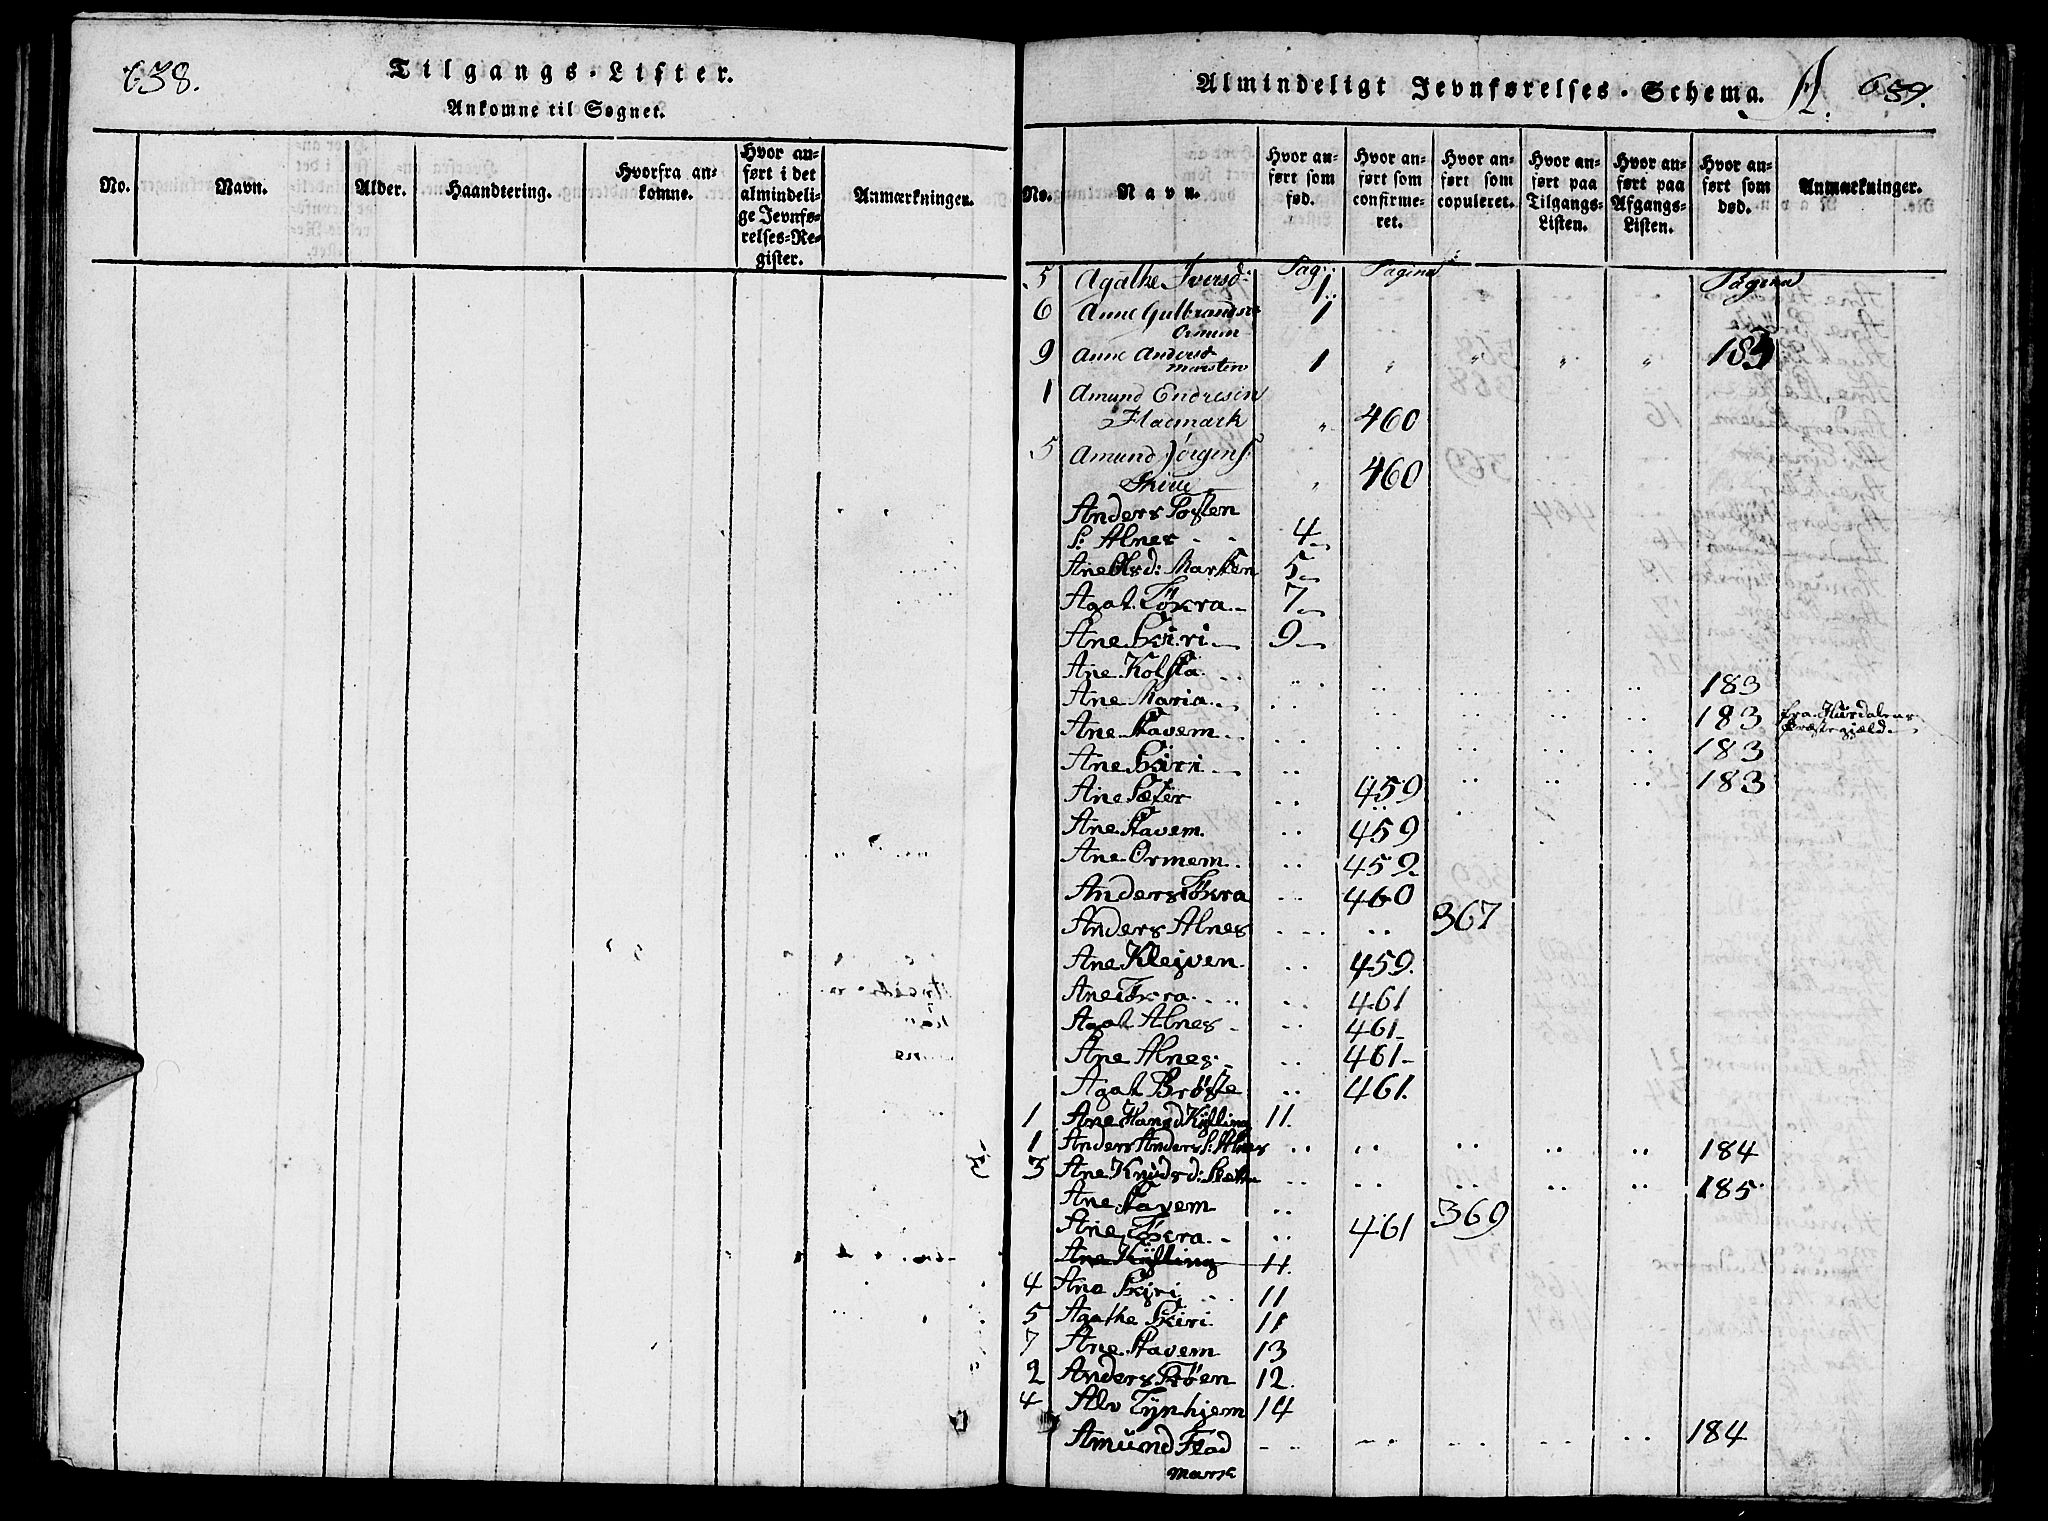 638.
Tilgangs-Lister.
Ankomne til Sognet.
No.
Navn.
Alder.
Haandtering.
Hvorfra an-
komne.
Hvor an-
ført i det
almindeli-
ge Jevnfø-
relses-Re-
gister.
Anmærkninger.
Almindeligt Jevnførelses-Schema. A. 639.
No.
Navn.
Hvor an-
ført som
fød.
Hvor an-
ført som
confirme-
ret.
Hvor an-
ført som
copuleret.
Hvor an-
ført paa
Tilgangs-
Listen.
Hvor an-
ført paa
Afgangs-
Listen.
Hvor an-
ført som
død.
Anmærkninger.
Pag: Pagina Pagina
5 Agathe Iversd: 1
6 Anne Gulbrandsd
Ormem 1
9 Anne Andersd
Marsten 1 " " " " 183
1 Amund Endresen
Fladmark " 460
5 Amund Jörgens:
Skiri " 460
Anders Posten
S: Alnes - - 4
Ane Olsd: Marsten 5
Agat. Tökra 7
Ane Skiri 9
Ane Kolsta .. .. .. .. .. 183
Ane Maria .. .. .. .. .. 183 fra Hurdalens
Præstegjæld.
Ane Stavem .. .. .. .. .. 183
Ane Skiri .. .. .. .. .. 183
Ane Sæter .. 459
Ane Stavem .. 459
Ane Ormem .. 459
Anders Tökra .. 460
Anders Alnes .. .. 367
Ane Klejven .. 459.
Ane Tökra .. 461
Agat Alnes .. 461
Ane Alnes .. 461
Agat Bröste .. 461.
1 Ane Hansd Kÿlling 11.
1 Anders Anders S: Alnes .. .. .. .. .. 184
3 Ane Knudsd: Sletta .. .. .. .. .. 185
Ane Stavem .. .. 369
Ane Tökra .. 461
Ane Kÿlling 11.
4 Ane Skjri .. 11
5 Agathe Skiri 11
7 Ane Stavem 13
2 Anders Tröen 12.
4 Alv Tÿnhjem 14
Amünd Flad
mark .. .. .. .. .. 184